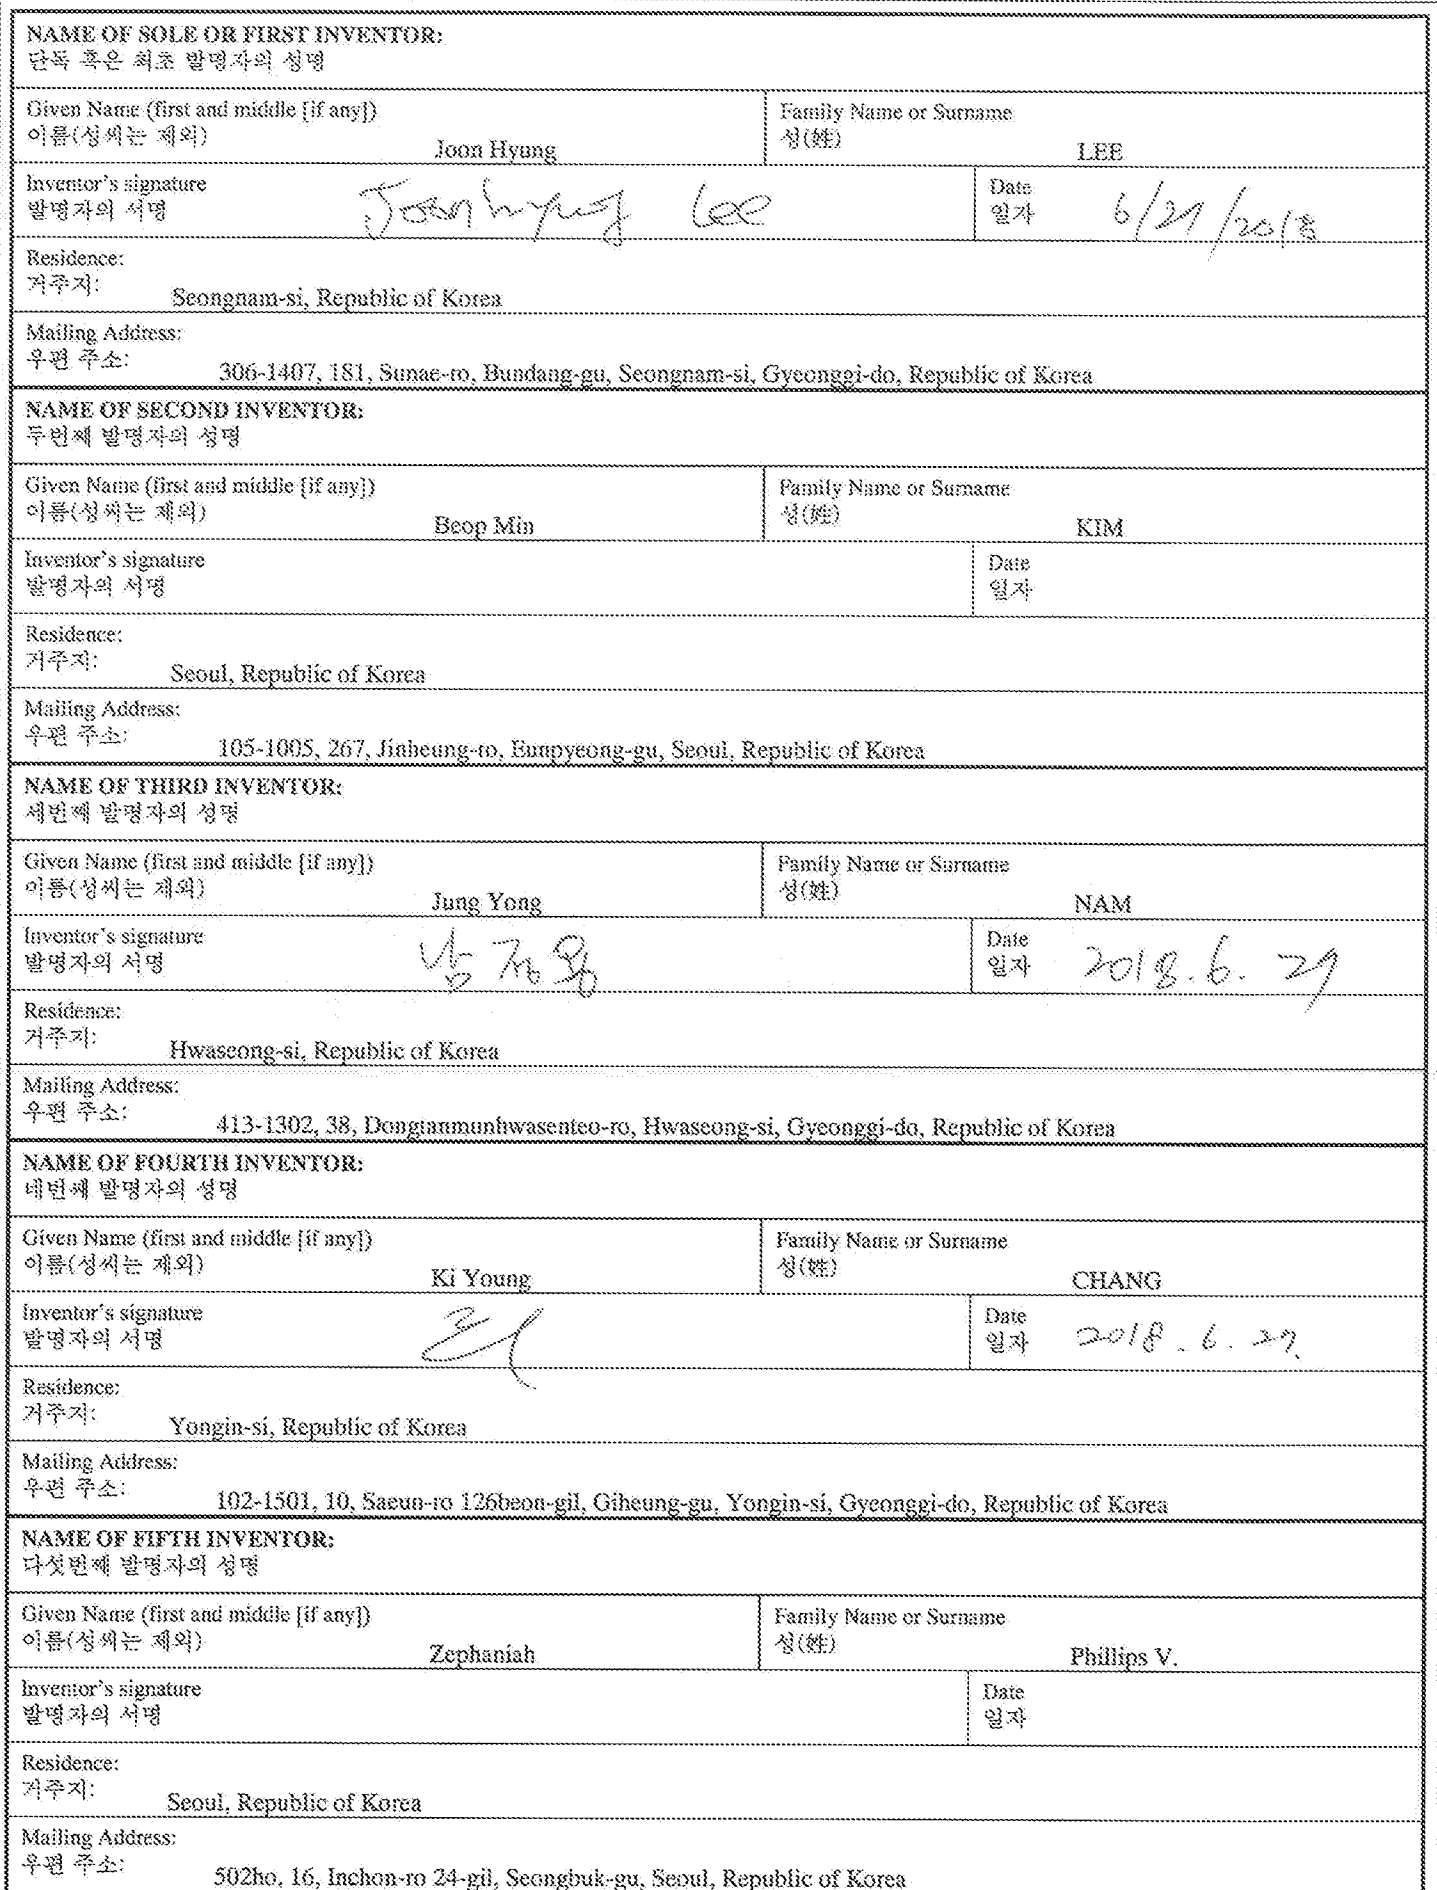 NAME OF SOLE OR FIRST INVENTOR:
단독 혹은 최초 발명자의 성명
Given Name (first and middle [if any])
이름(성씨는 제외)
Joon Hyung
Family Name or Surname
성(姓)
LEE
Inventor's signature
발명자의 서명
Joonhyung Lee
Date
일자
6/27/2018
Residence:
거주지:
Seongnam-si, Republic of Korea
Mailing Address:
우편 주소:
306-1407, 181, Sunae-ro, Bundang-gu, Seongnam-si, Gyeonggi-do, Republic of Korea
NAME OF SECOND INVENTOR:
두번째 발명자의 성명
Given Name (first and middle [if any])
이름(성씨는 제외)
Beop Min
Family Name or Surname
성(姓)
KIM
Inventor's signature
발명자의 서명
Date
일자
Residence:
거주지:
Seoul, Republic of Korea
Mailing Address:
우편 주소:
105-1005, 267, Jinheung-ro, Eunpyeong-gu, Seoul, Republic of Korea
NAME OF THIRD INVENTOR:
세번째 발명자의 성명
Given Name (first and middle [if any])
이름(성씨는 제외)
Jung Yong
Family Name or Surname
성(姓)
NAM
Inventor's signature
발명자의 서명
남정용
Date
일자
2018. 6. 27
Residence:
거주지:
Hwaseong-si, Republic of Korea
Mailing Address:
우편 주소:
413-1302, 38, Dongtanmunhwasenteo-ro, Hwaseong-si, Gyeonggi-do, Republic of Korea
NAME OF FOURTH INVENTOR:
네번째 발명자의 성명
Given Name (first and middle [if any])
이름(성씨는 제외)
Ki Young
Family Name or Surname
성(姓)
CHANG
Inventor's signature
발명자의 서명
Date
일자
2018. 6. 27.
Residence:
거주지:
Yongin-si, Republic of Korea
Mailing Address:
우편 주소:
102-1501, 10, Saeun-ro 126beon-gil, Giheung-gu, Yongin-si, Gyeonggi-do, Republic of Korea
NAME OF FIFTH INVENTOR:
다섯번째 발명자의 성명
Given Name (first and middle [if any])
이름(성씨는 제외)
Zephaniah
Family Name or Surname
성(姓)
Phillips V.
Inventor's signature
발명자의 서명
Date
일자
Residence:
거주지:
Seoul, Republic of Korea
Mailing Address:
우편 주소:
502ho, 16, Inchon-ro 24-gil, Seongbuk-gu, Seoul, Republic of Korea